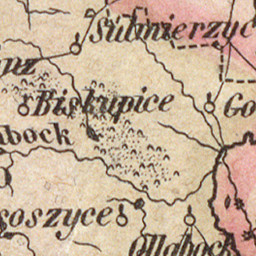 Sulmierzyc
nz
Biskupice
Go
abock
goszyce
Ollabock